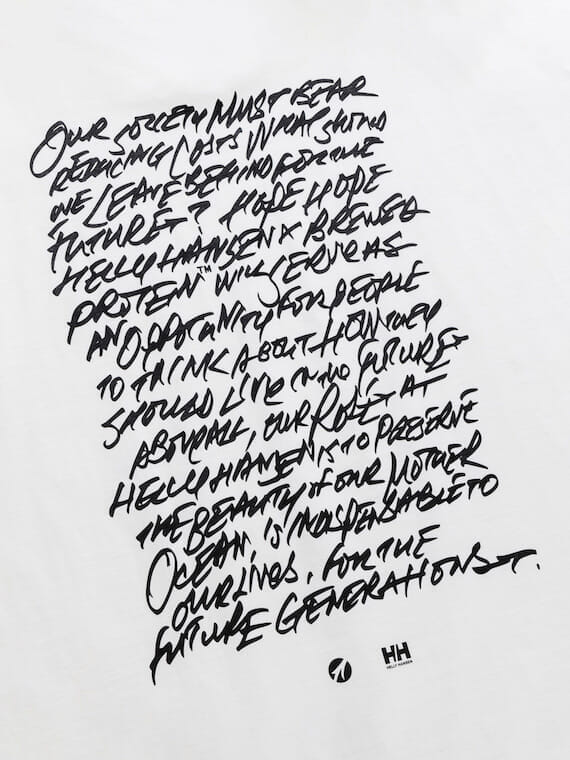 OUR SOCIETY MUST BEAR
REDUCING COSTS WHAT SHOULD
WE LEAVE BEHIND FOR THE
FUTURE? HOPE HOPE
HELLY HANSEN X BREWED
PROTEIN™ WILL SERVE AS
AN OPPOTUNITY FOR PEOPLE
TO THINK ABOUT HOW THEY
SHOULD LIVE IN THE FUTURE
ABOVE ALL, OUR ROLE AT
HELLY HANSEN IS TO PRESERVE
THE BEAUTY of OUR MOTHER
OCEAN, IS INDISPENSABLE TO
OUR LIVES. FOR THE
FUTURE GENERATIONS.
HH
HELLY HANSEN